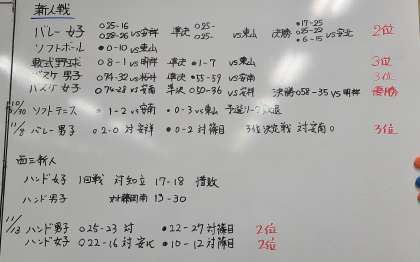 新人戦
バレー女子 o25-16 準決 o25- 決勝 •17-25 2位
o28-26 vs安祥 o25- vs東山 o25-20
•6-15 vs安北
ソフトボール •0-10 vs東山
軟式野球 o8-1 vs明祥 準決 •1-7 vs東山 3位
バスケ男子 o74-32 vs桜井 準決 •55-59 vs安南 3位
バスケ女子 o74-28 vs安南 準決 o50-36 vs安祥 決勝 o58-35 vs明祥 優勝
10/30 ソフトテニス •1-2 vs安南 •0-3 vs東山 予選リーグ敗退
11/ バレー男子 o2-0 対安祥 •0-2 対篠目 3位決定戦 対安南o 3位
西三新人
ハンド女子 1回戦 対知立 17-18 惜敗
ハンド男子 13-30
11/13 ハンド男子 o25-23 対 •22-27 対篠目 2位
ハンド女子 o22-16 対安北 •10-12 対篠目 2位